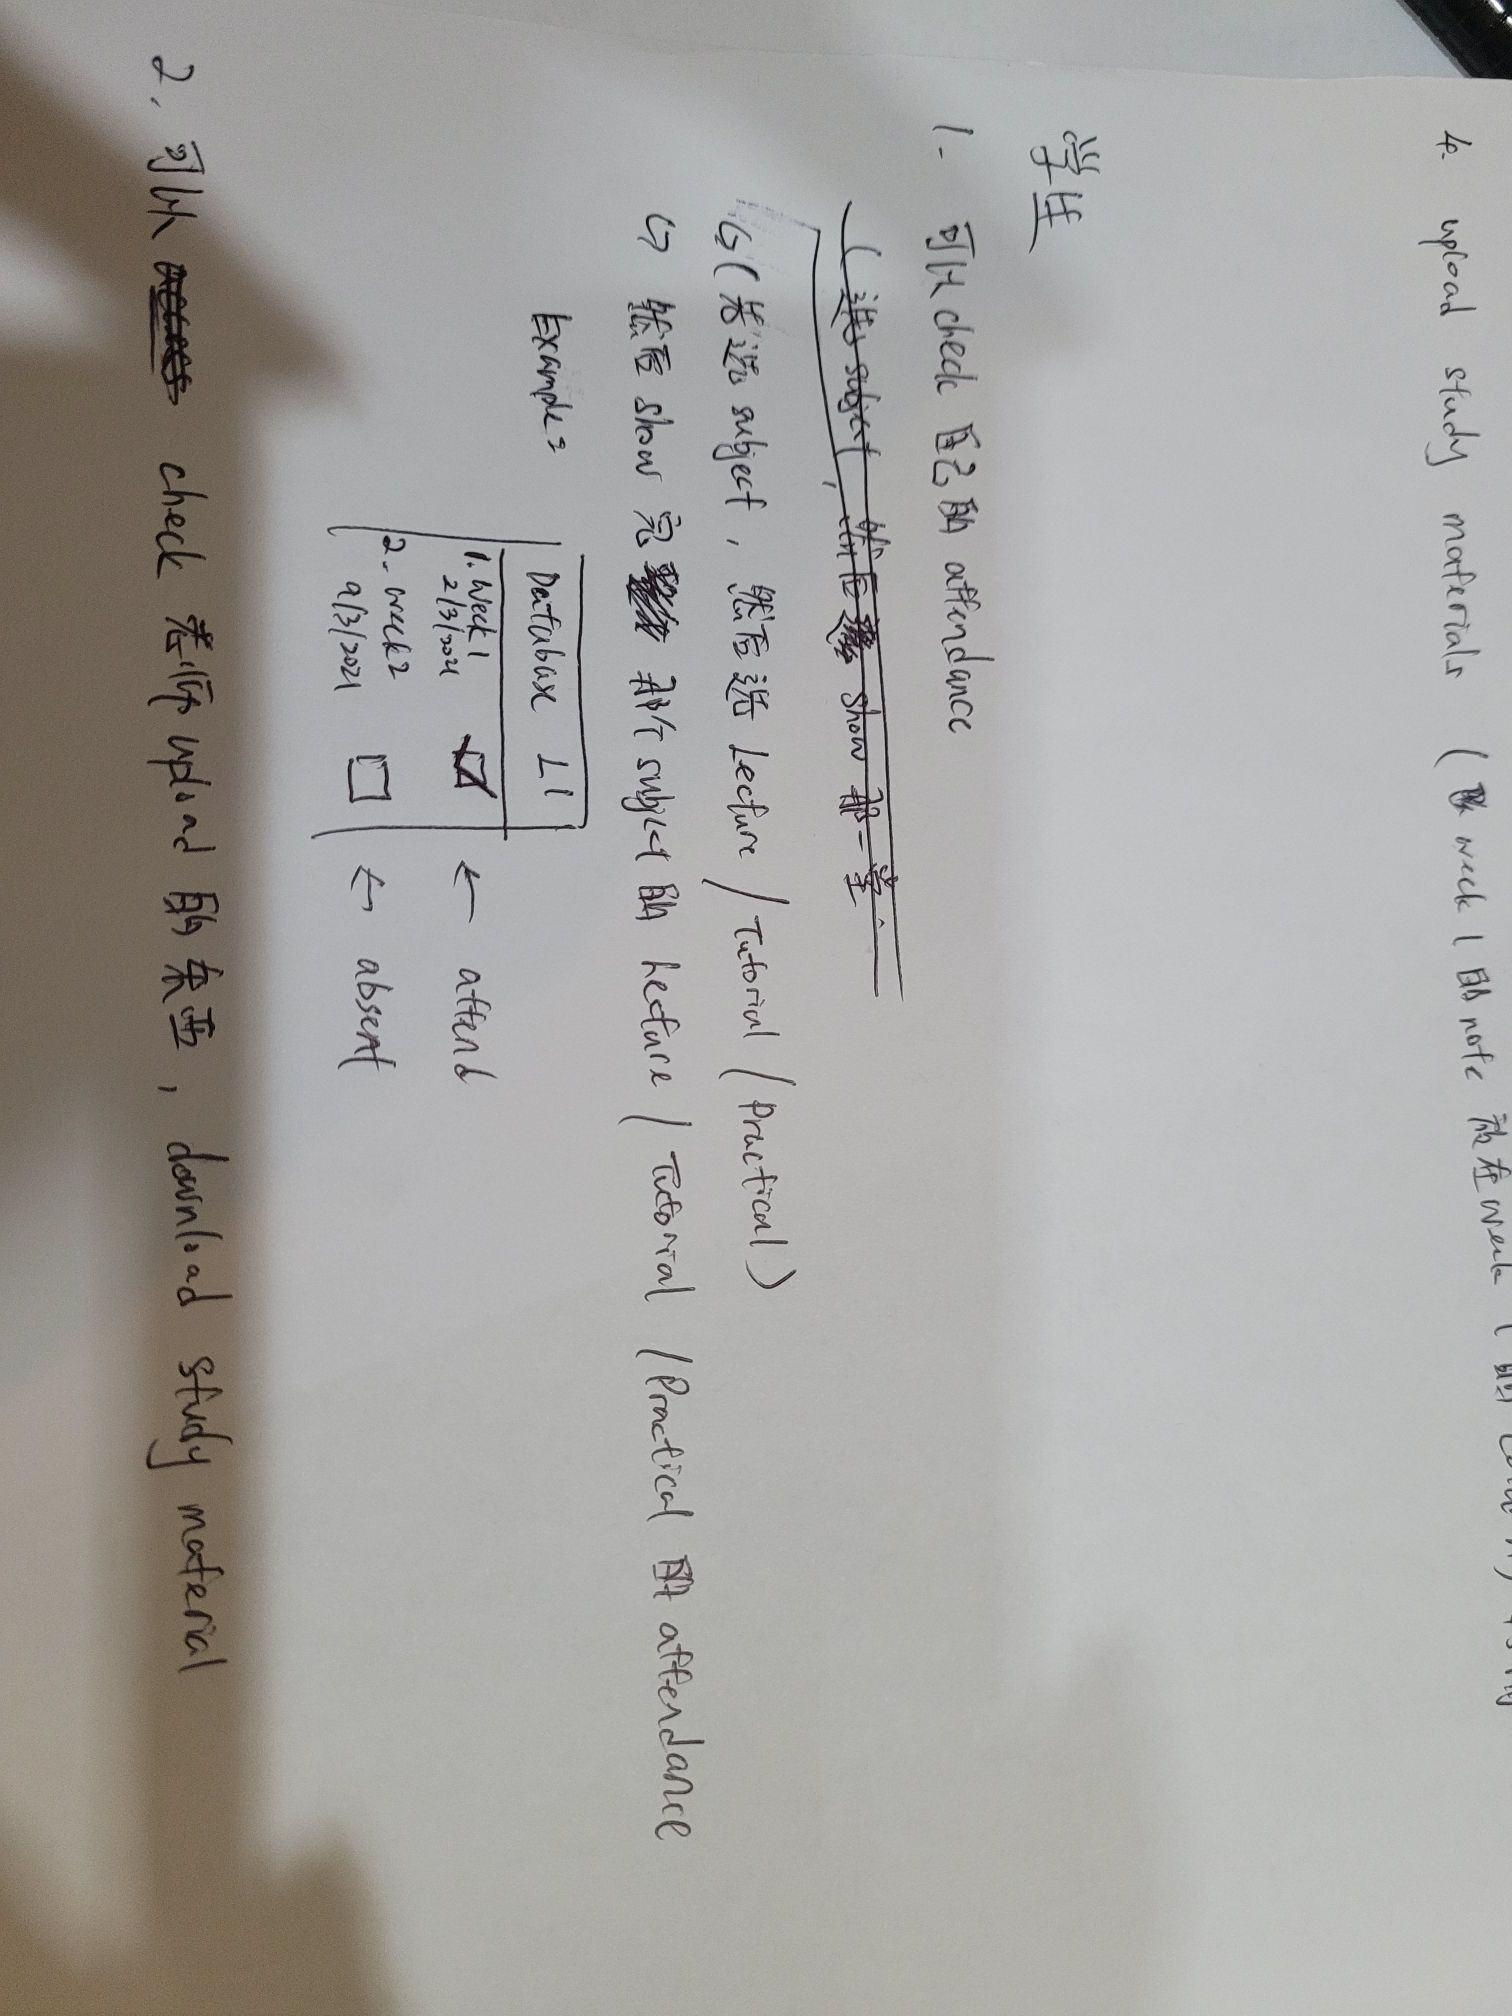 4. upload study materials ( week 1 的 note 放在 week 1 的
学生
1. 可以 check 自己的 attendance
( 选 subject, 然后 show 那一堂
( 先选 subject, 然后选 Lecture / Tutorial / Practical )
然后 show 完 那个 subject 的 Lecture / Tutorial / Practical 的 attendance
Example:
Database L1
1. Week 1 ← attend
2/3/2021
2. week 2 ← absent
9/3/2021
2. 可以 access check 老师 upload 的东西, download study material